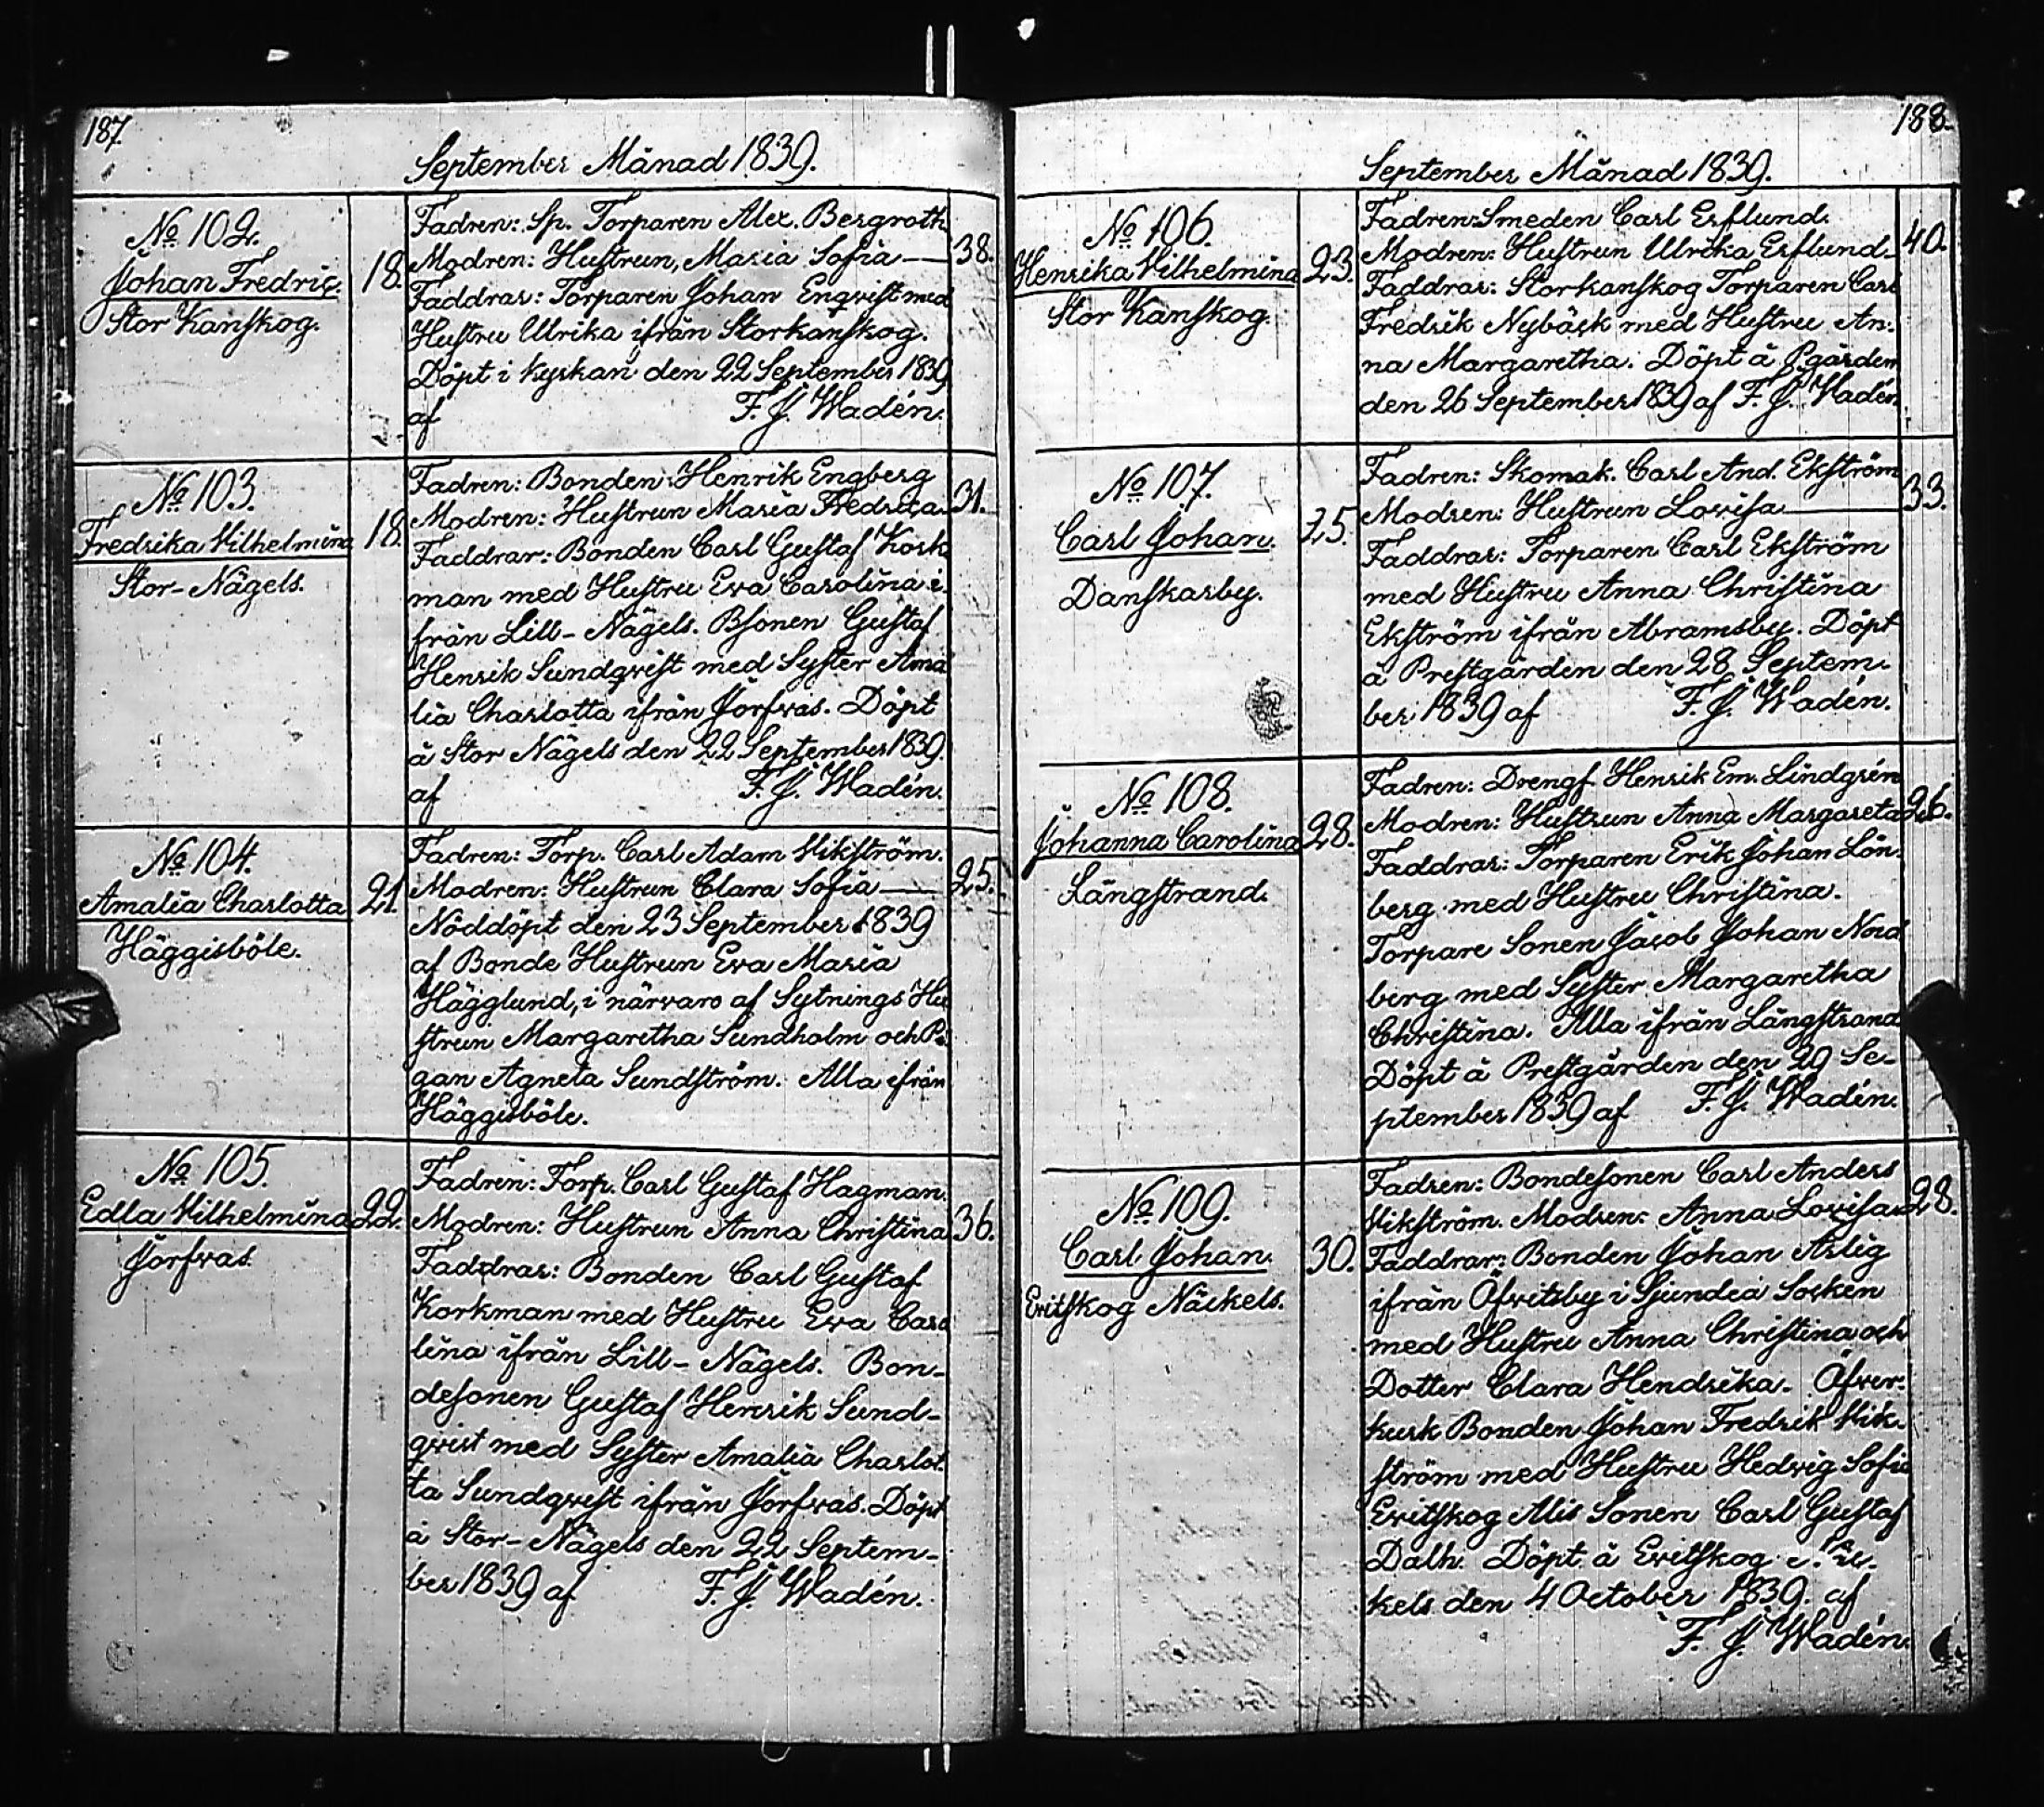 187.
September Månad 1839.
No 102.
Johan Fredric.
Stor Kanskog.
18.
Fadren: Sp. Torparen Alex. Bergroth
Modren: Hustrun, Maria Sofia —
38.
Faddrar: Torparen Johan Enqvist med
Hustru Ulrika ifrån Storkanskog.
Döpt i Kyrkan den 22 September 1839
af F. J. Wadén.
No 103.
Fredrika Vilhelmina
Stor-Nägels.
18.
Fadren: Bonden Henrik Engberg
Modren: Hustrun Maria Fredrica.
31.
Faddrar: Bonden Carl Gustaf Kork
man med Hustru Eva Carolina i-
från Lill-Nägels. Bsonen Gustaf
Henrik Sundqvist med Syster Ama
lia Charlotta ifrån Jorfvas. Döpt
å Stor Nägels den 22 September 1839.
af F. J. Wadén.
No 104.
Amalia Charlotta
Häggisböle.
21.
Fadren: Torp. Carl Adam Vikström.
Modren: Hustrun Clara Sofia —
25.
Nöddöpt den 23 September 1839
af Bonde Hustrun Eva Maria
Hägglund, i närvaro af Sytnings Hu
strun Margaretha Sundholm och Pi
gan Agneta Sundström. Alla ifrån
Häggisböle.
No 105.
Edla Vilhelmina
Jorfvas.
22.
Fadren: Torp. Carl Gustaf Hagman.
Modren: Hustrun Anna Christina
36.
Faddrar: Bonden Carl Gustaf
Korkman med Hustru Eva Caro
lina ifrån Lill-Nägels. Bon-
desonen Gustaf Henrik Sund-
qvist med Syster Amalia Charlot-
ta Sundqvist ifrån Jorfvas. Döpt
å Stor-Nägels den 22 Septem-
ber 1839 af F. J. Wadén.
188.
September Månad 1839.
No 106.
Henrika Vilhelmina
Stor Kanskog.
23.
Fadren: Smeden Carl Erflund.
Modren: Hustrun Ulrika Erflund-
40.
Faddrar: Storkanskog Torparen Carl
Fredrik Nybäck med Hustru An-
na Margaretha. Döpt å Pgården
den 26 September 1839 af F. J. Wadén
No 107.
Carl Johan.
Danskarby.
25.
Fadren: Skomak. Carl And. Ekström
Modren: Hustrun Lovisa —
33.
Faddrar: Torparen Carl Ekström
med Hustru Anna Christina
Ekström ifrån Abramsby. Döpt
å Prestgården den 28 Septem-
ber 1839 af F. J. Wadén.
No 108.
Johanna Carolina
Långstrand.
28.
Fadren: Drengf Henrik Em. Lindgrén
Modren: Hustrun Anna Margareta
26.
Faddrar: Torparen Erik Johan Lön-
berg med Hustru Christina.
Torpare Sonen Jacob Johan Nord
berg med Syster Margaretha
Christina. Alla ifrån Långstrand
Döpt å Prestgården den 29 Se-
ptember 1839 af F. J. Wadén.
No 109.
Carl Johan.
Evitskog Näckels.
30.
Fadren: Bondesonen Carl Anders
Vikström. Modren: Anna Lovisa
28.
Faddrar: Bonden Johan Arlig
ifrån Öfvitsby i Sjundeå Socken
med Hustru Anna Christina och
Dotter Clara Hendrika. Öfver-
kurk Bonden Johan Fredrik Vik-
ström med Hustru Hedvig Sofia
Evitskog Alis Sonen Carl Gustaf
Dalh. Döpt å Evitskog
kels den 4 October 1839. af
F. J. Wadén.